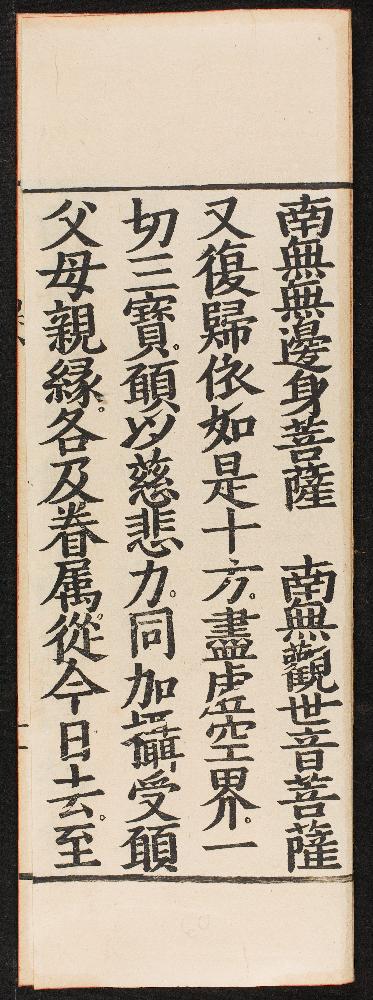 南無無邊身菩薩　南無觀世音菩薩
又復歸依如是十方。盡虛空界。一
切三寶。願以慈悲力。同加攝受願
父母親緣。各及眷属。從今日去。至